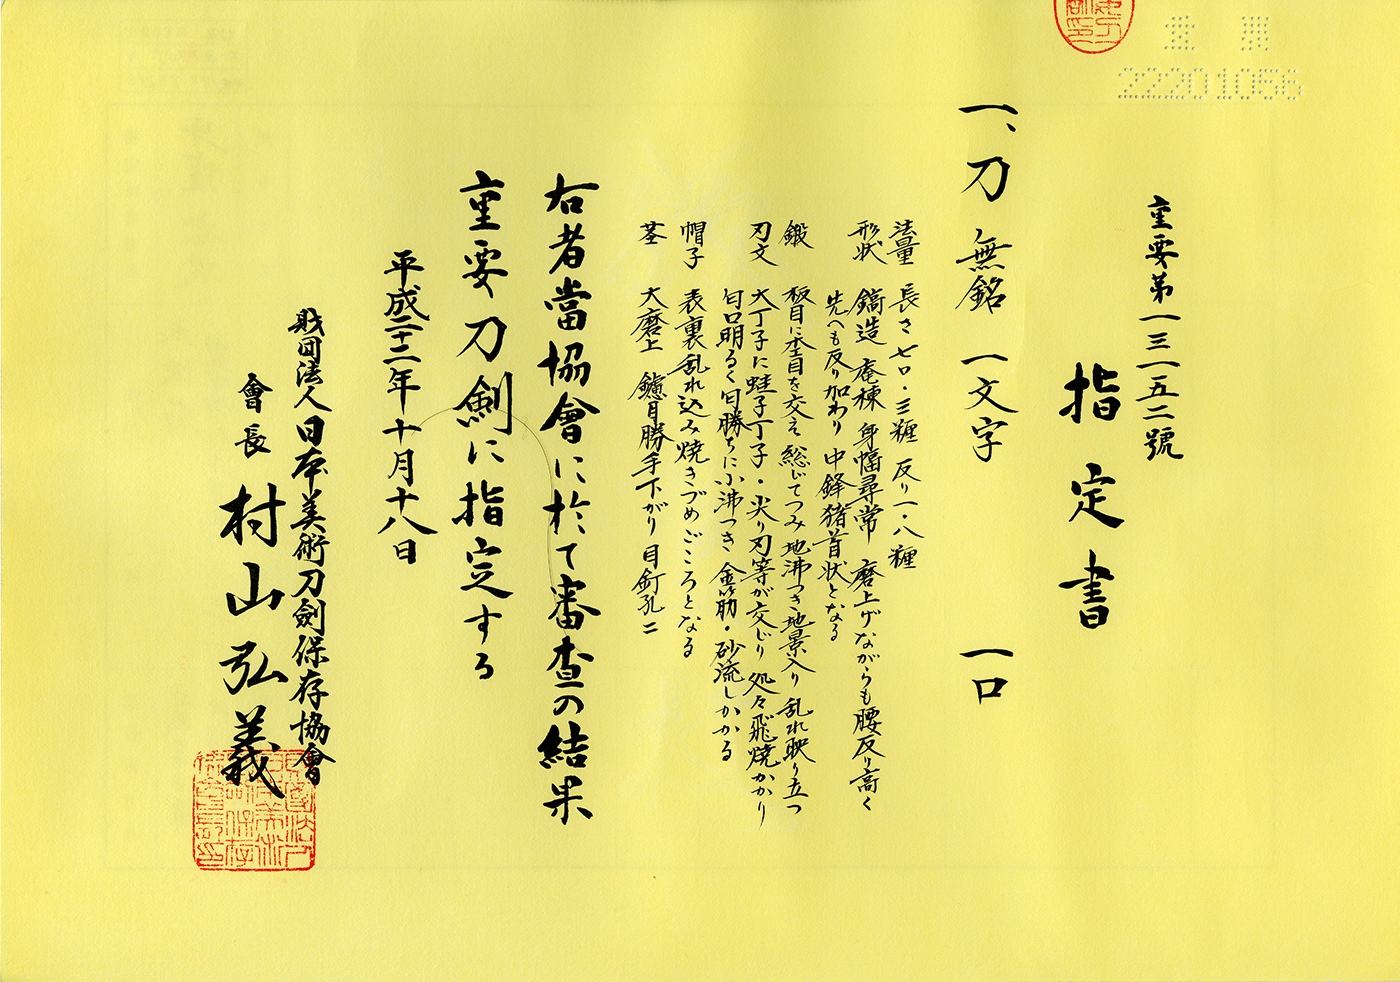 22201056
重要第一三一五二號
指定書
一、刀 無銘 一文字 一口
法量 長さ 七〇・三糎 反り一・八糎
形状 鎬造 庵棟 身幅尋常 磨上げながらも腰反り高く
先へも反り加わり 中鋒猪首状となる
鍛 板目に杢目を交え 総じてつみ 地沸つき地景入り 乱れ映り立つ
刃文 大丁子に蛙子丁子・尖り刃等が交じり 処々飛焼かかり
匂口明るく匂勝ちに小沸つき 金筋・砂流しかかる
帽子 表裏乱れ込み焼きづめごころとなる
茎 大磨上 鑢目勝手下がり 目釘孔二
右者當協會に於て審査の結果
重要刀剣に指定する
平成二十二年十月十八日
財団法人日本美術刀劍保存協會
會長 村山弘義